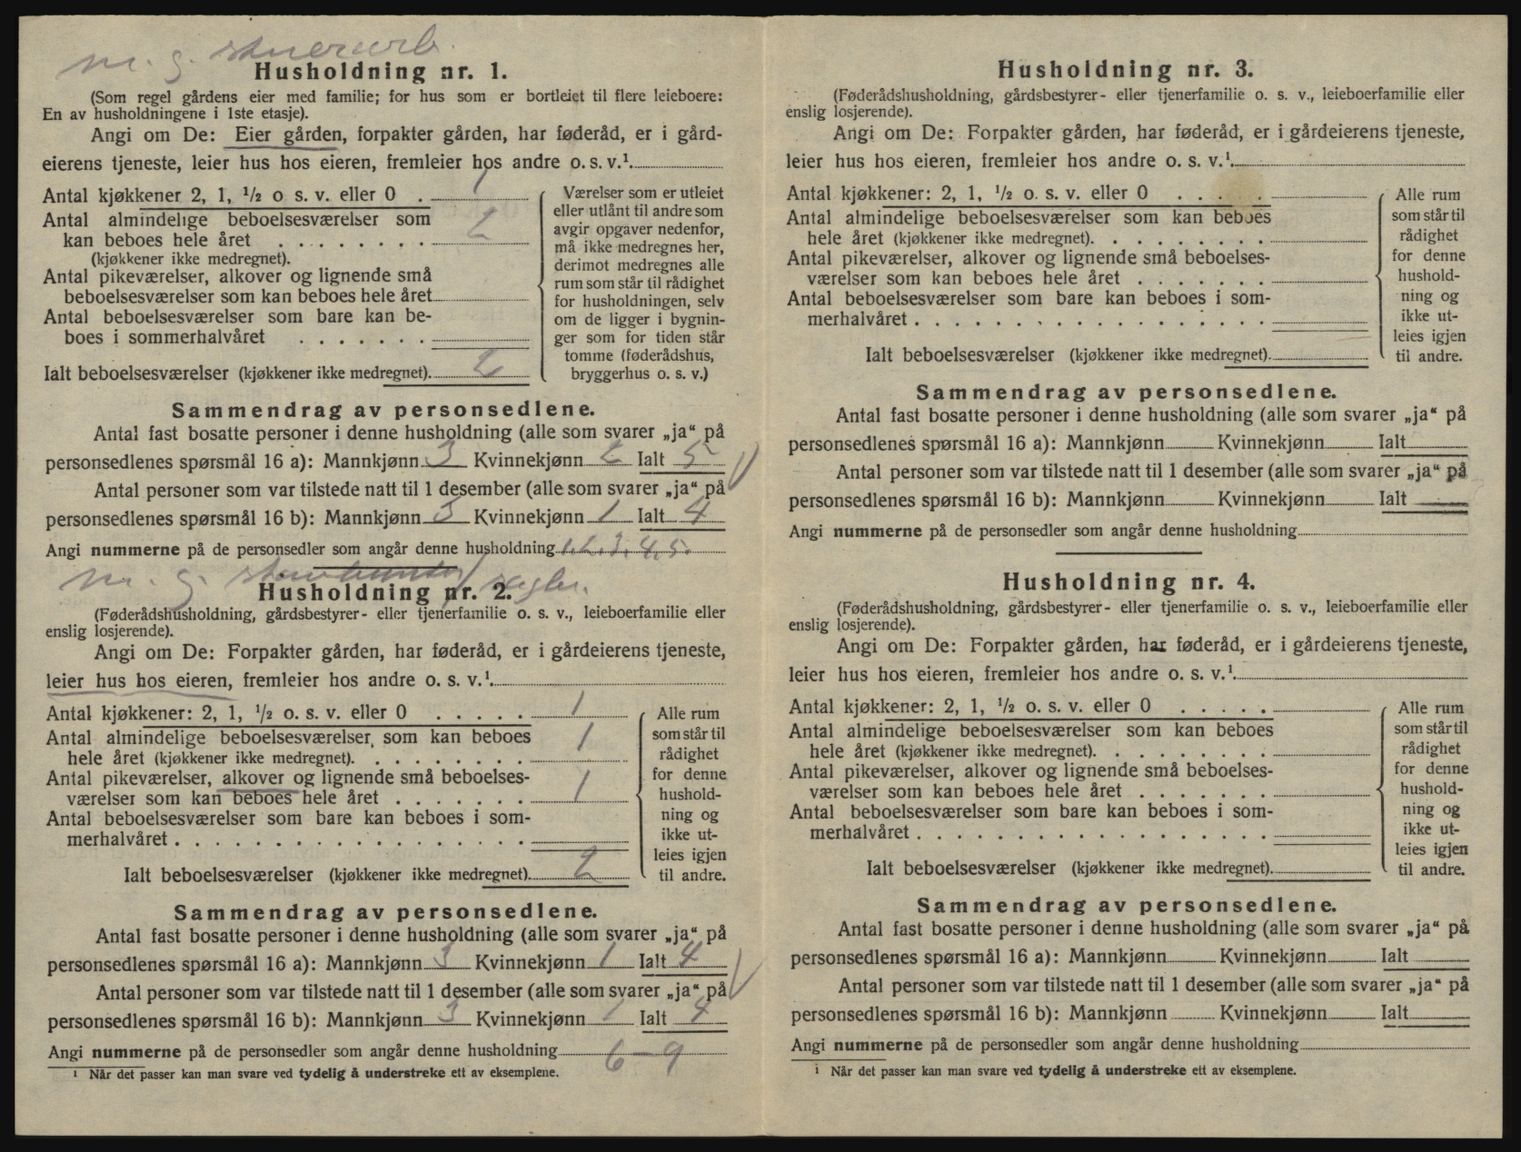 m. g. stuerarb.
Husholdning nr. 1.
(Som regel gårdens eier med familie; for hus som er bortleiet til flere leieboere:
En av husholdningene i 1ste etasje).
Angi om De: Eier gården, forpakter gården, har føderåd, er i gård-
eierens tjeneste, leier hus hos eieren, fremleier hos andre o. s. v.¹
Antal kjøkkener 2, 1, ½ o s. v. eller 0 . 1
Antal almindelige beboelsesværelser som
kan beboes hele året . . . . . . . . 2
(kjøkkener ikke medregnet).
Antal pikeværelser, alkover og lignende små
beboelsesværelser som kan beboes hele året
Antal beboelsesværelser som bare kan be-
boes i sommerhalvåret . . . . . . .
Ialt beboelsesværelser (kjøkkener ikke medregnet). 2
Værelser som er utleiet
eller utlånt til andre som
avgir opgaver nedenfor,
må ikke medregnes her,
derimot medregnes alle
rum som står til rådighet
for husholdningen, selv
om de ligger i bygnin-
ger som for tiden står
tomme (føderådshus,
bryggerhus o. s. v.)
Sammendrag av personsedlene.
Antal fast bosatte personer i denne husholdning (alle som svarer „ja“ på
personsedlenes spørsmål 16 a): Mannkjønn 3 Kvinnekjønn 2 Ialt 5
Antal personer som var tilstede natt til 1 desember (alle som svarer „ja“ på
personsedlenes spørsmål 16 b): Mannkjønn 3 Kvinnekjønn 1 Ialt 4
Angi nummerne på de personsedler som angår denne husholdning 1, 2, 3, 4, 5.
m. g.
Husholdning nr. 2.
(Føderådshusholdning, gårdsbestyrer- eller tjenerfamilie o. s. v., leieboerfamilie eller
enslig losjerende).
Angi om De: Forpakter gården, har føderåd, er i gårdeierens tjeneste,
leier hus hos eieren, fremleier hos andre o. s. v.¹
Antal kjøkkener: 2, 1, ½ o. s. v. eller 0 . . . . . 1
Antal almindelige beboelsesværelser som kan beboes
hele året (kjøkkener ikke medregnet). . . . . . . . . 1
Antal pikeværelser, alkover og lignende små beboelses-
værelser som kan beboes hele året . . . . . . . 1
Antal beboelsesværelser som bare kan beboes i som-
merhalvåret . . . . . . . . . . . . . . . . . .
Ialt beboelsesværelser (kjøkkener ikke medregnet). 2
Alle rum
som står til
rådighet
for denne
hushold-
ning og
ikke ut-
leies igjen
til andre.
Sammendrag av personsedlene.
Antal fast bosatte personer i denne husholdning (alle som svarer „ja“ på
personsedlenes spørsmål 16 a): Mannkjønn 3 Kvinnekjønn 1 Ialt 4
Antal personer som var tilstede natt til 1 desember (alle som svarer „ja“ på
personsedlenes spørsmål 16 b): Mannkjønn 3 Kvinnekjønn 1 Ialt 4
Angi nummerne på de personsedler som angår denne husholdning 6-9
¹ Når det passer kan man svare ved tydelig å understreke ett av eksemplene.
Husholdning nr. 3.
(Føderådshusholdning, gårdsbestyrer- eller tjenerfamilie o. s. v., leieboerfamilie eller
enslig losjerende).
Angi om De: Forpakter gården, har føderåd, er i gårdeierens tjeneste,
leier hus hos eieren, fremleier hos andre o. s. v.¹
Antal kjøkkener: 2, 1, ½ o. s. v. eller 0 . . . . .
Antal almindelige beboelsesværelser som kan beboes
hele året (kjøkkener ikke medregnet). . . . . . . . .
Antal pikeværelser, alkover og lignende små beboelses-
værelser som kan beboes hele året . . . . . . .
Antal beboelsesværelser som bare kan beboes i som-
merhalvåret . . . . . . . . . . . . . . . . . .
Ialt beboelsesværelser (kjøkkener ikke medregnet).
Alle rum
som står til
rådighet
for denne
hushold-
ning og
ikke ut-
leies igjen
til andre.
Sammendrag av personsedlene.
Antal fast bosatte personer i denne husholdning (alle som svarer „ja“ på
personsedlenes spørsmål 16 a): Mannkjønn Kvinnekjønn Ialt
Antal personer som var tilstede natt til 1 desember (alle som svarer „ja“ på
personsedlenes spørsmål 16 b): Mannkjønn Kvinnekjønn Ialt
Angi nummerne på de personsedler som angår denne husholdning
Husholdning nr. 4.
(Føderådshusholdning, gårdsbestyrer- eller tjenerfamilie o. s. v., leieboerfamilie eller
enslig losjerende).
Angi om De: Forpakter gården, har føderåd, er i gårdeierens tjeneste,
leier hus hos eieren, fremleier hos andre o. s. v.¹
Antal kjøkkener: 2, 1, ½ o. s. v. eller 0 . . . . .
Antal almindelige beboelsesværelser som kan beboes
hele året (kjøkkener ikke medregnet). . . . . . . . .
Antal pikeværelser, alkover og lignende små beboelses-
værelser som kan beboes hele året . . . . . . .
Antal beboelsesværelser som bare kan beboes i som-
merhalvåret . . . . . . . . . . . . . . . . . .
Ialt beboelsesværelser (kjøkkener ikke medregnet).
Alle rum
som står til
rådighet
for denne
hushold-
ning og
ikke ut-
leies igjen
til andre.
Sammendrag av personsedlene.
Antal fast bosatte personer i denne husholdning (alle som svarer „ja“ på
personsedlenes spørsmål 16 a): Mannkjønn Kvinnekjønn Ialt
Antal personer som var tilstede natt til 1 desember (alle som svarer „ja“ på
personsedlenes spørsmål 16 b): Mannkjønn Kvinnekjønn Ialt
Angi nummerne på de personsedler som angår denne husholdning
¹ Når det passer kan man svare ved tydelig å understreke ett av eksemplene.